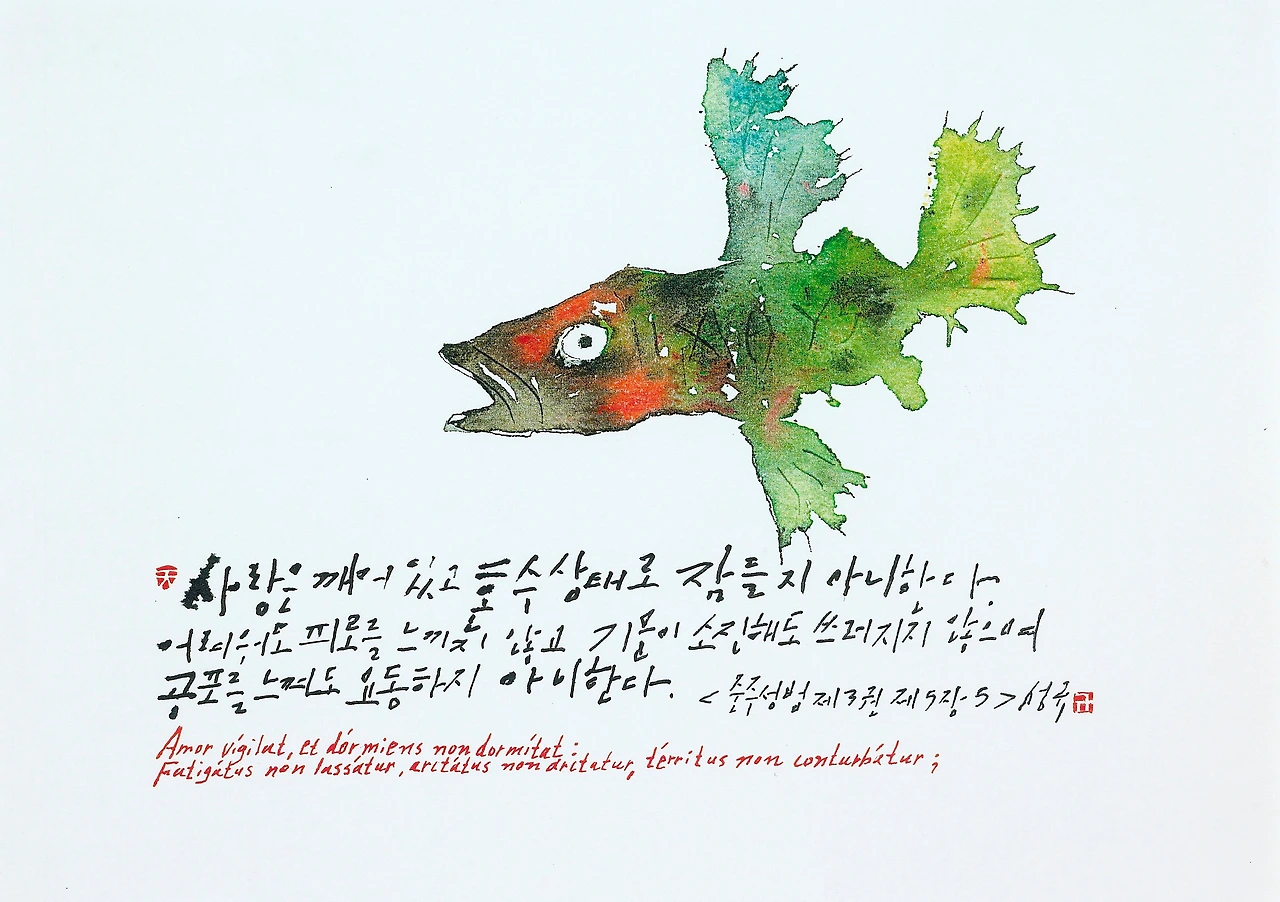 사랑은 깨어 있고 혼수상태로 잠들지 아니하다.
어려워도 피로를 느끼지 않고 기분이 소진해도 쓰러지지 않으며
공포를 느껴도 요동하지 아니한다. <준주성범 제3권 제5장-5> 성규
Amor vígilat, et dórmiens non dormítat:
Fatigátus non lassátur, arctátus non arctatur, térritus non conturbátur;